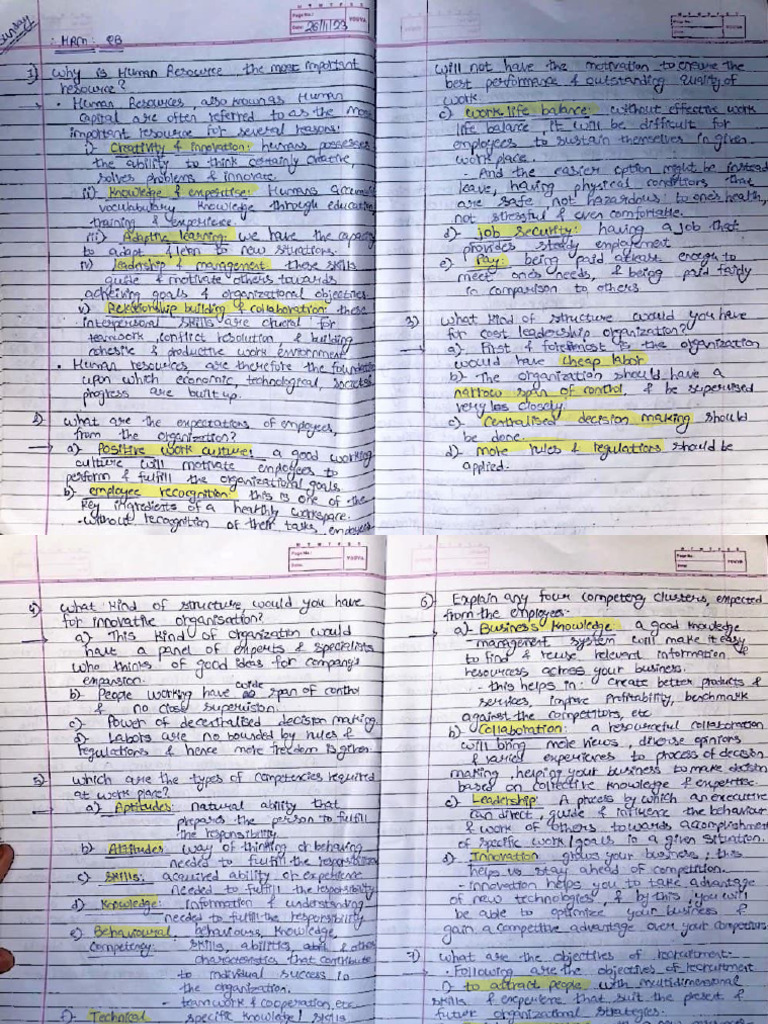 Sunday
Page No.:
Date: 26/11/23
YOUVA
: HRM : QB
1) Why is Human Resource, the most important
resource?
• Human Resources, also known as Human
Capital are often referred to as the most
important resource for several reasons:
i)- Creativity & innovation: humans possesses
the ability to think certainly creative,
solves problems & innovate.
ii)- Knowledge & expertise: Humans accumulate
vocubulary knowledge through education
training & experience.
iii)- Adaptive learning: we have the capacity
to adapt & learn to new situations.
iv)- leadership & management: these skills
guide & motivate others towards
acheiving goals & organizational objectives
v)- Relationship building & collaboration: these
interpersonal skills are crucial for
teamwork, conflict resolution, & building
cohesive & productive work enviornment
• Human resources, are therefore the foundation
upon which economic, technological, societal
progress are built up.
2) What are the expectations of employees,
from the organization?
a)- Positive work culture: a good working
culture will motivate employees to
perform & fulfill the organizational goals
b)- employee recognition: this is one of the
key ingredients of a healthy workspace.
- without recognition of their tasks, employees
will not have the motivation to ensure the
best performance & outstanding quality of
work.
c)- work life balance: without effective work
life balance, it will be difficult for
employees to sustain themselves in given
work place.
- And the easier option might be instead
leave, having physical conditions that
are safe, not hazardous to one's health,
not stressful & even comfortable.
d)- job security: having a job that
provides steady employement
e)- Pay: being paid atleast enough to
meet one's needs, & being paid fairly
in comparison to others.
3) What kind of structure would you have
for cost leadership organization?
a)- First & foremost is the organization
would have cheap labor
b)- The organization should have a
narrow span of control, & be supervised
very less closely.
c)- Centralised decision making should
be done.
d)- more rules & regulations should be
applied.
Page No.:
Date:
YOUVA
4) What kind of structure, would you have
for innovative organisation?
a)- This kind of organization would
have a panel of experts & specialists
who thinks of good ideas for company's
expansion.
b)- People working have wide span of control
& no close supervision.
c)- Power of decentralised decision making
d)- Labors are no bounded by rules &
regulations & hence more freedom is given.
5) which are the types of competencies required
at work place?
a)- Aptitudes: natural ability that
prepares the person to fulfill
the responsibility
b)- Attitudes: way of thinking or behaving
needed to fulfill the responsibility
c)- Skills: acquired ability or experience
needed to fulfill the responsibility
d)- Knowledge: information & understanding
needed to fulfill the responsibility
e)- Behavioural competency: behaviours, knowledge,
skills, abilities, & other
characteristics that contribute
to individual success in
the organization.
- teamwork & cooperation, etc
f)- Technical specific knowledge/ skills
6) Explain any four competency clusters, expected
from the employees.
a)- Business Knowledge: a good knowledge
- management system will make it easy
to find & reuse relevant information
resources across your business.
- this helps in: create better products &
services, improve Profitability, benchmark
against the competitors, etc
b)- Collaboration: a resourceful collaboration
will bring more views, diverse opinions
& varied experiences to process of decision
making, helping your business to make decision
based on collective knowledge & expertise.
c)- Leadership: A process by which an executive
can direct, guide & influence the behaviour
& work of others towards accomplishment
of specific work/goals in a given situation.
d)- Innovation grows your business; this
helps us stay ahead of competition.
- innovation helps you to take advantage
of new technologies, & by this you will
be able to optimize your business &
gain a competitive advantage over your competitors
7) what are the objectives of recruitment:-
• Following are the objectives of recruitment
i)- to attract people with multidimensional
skills & experience that suit the present &
future organizational strategies.